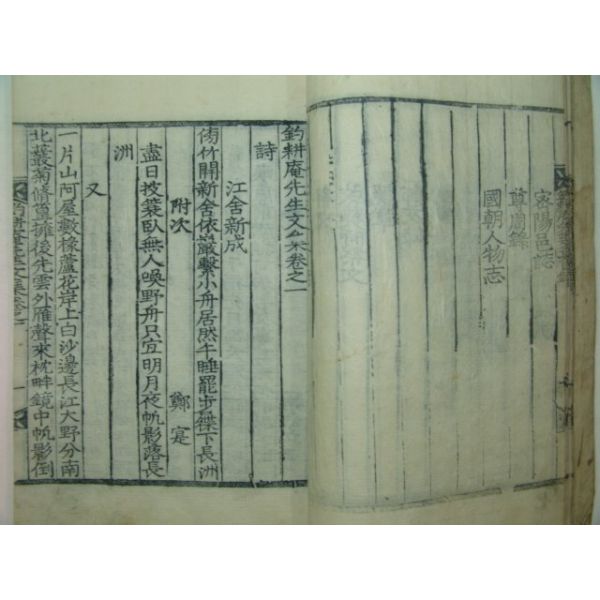 密陽邑誌
尊周錄
國朝人物志
釣耕庵先生文集卷之一
詩
江舍新成
傍竹開新舍依巖繫小舟居然午睡罷步屧下長洲
附次
鄭寔
盡日披蓑臥無人喚野舟只宜明月夜帆影落長
洲
又
一片山阿屋數椽蘆花岸上白沙邊長江大野分南
北叢菊脩篁擁後先雲外雁聲來枕畔鏡中帆影倒